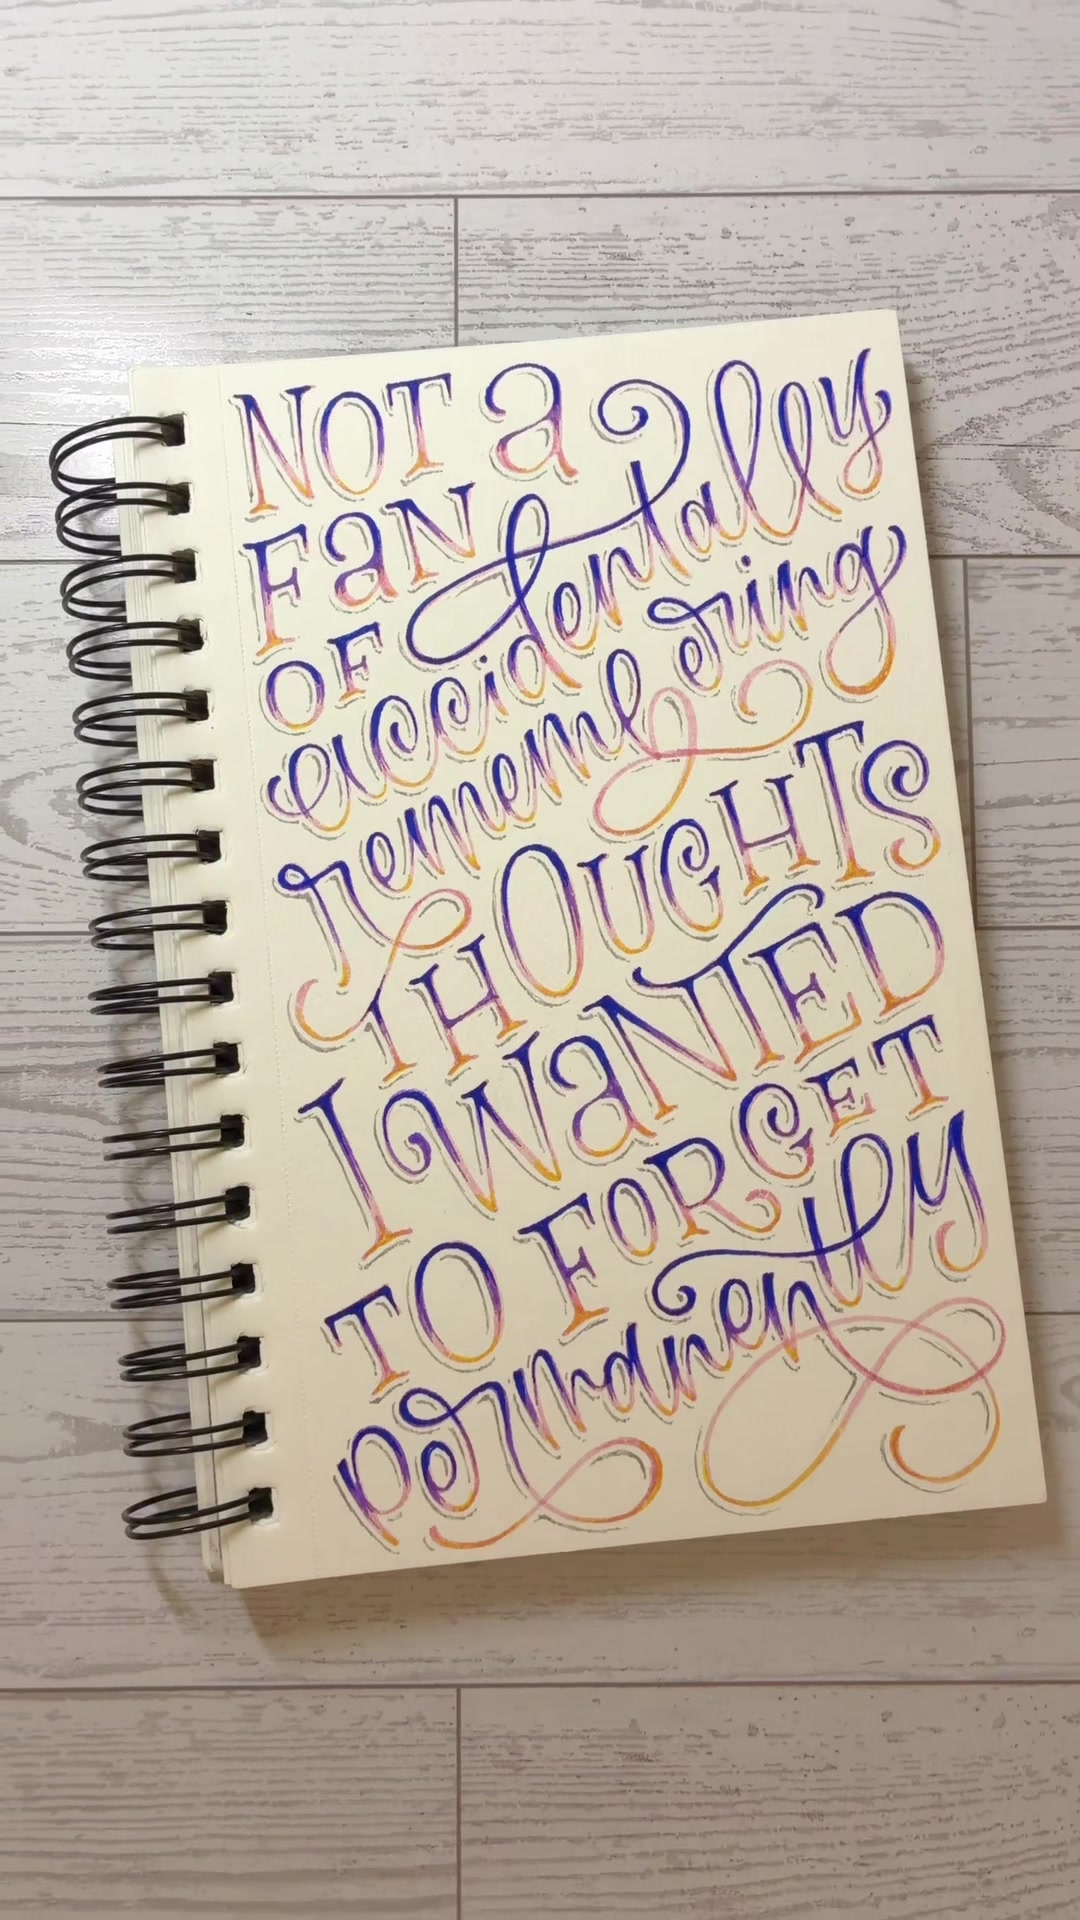 NOT a
FaN
OF accidentally
remembering
THOUGHTS
I WaNTED
TO FORGET
permanently